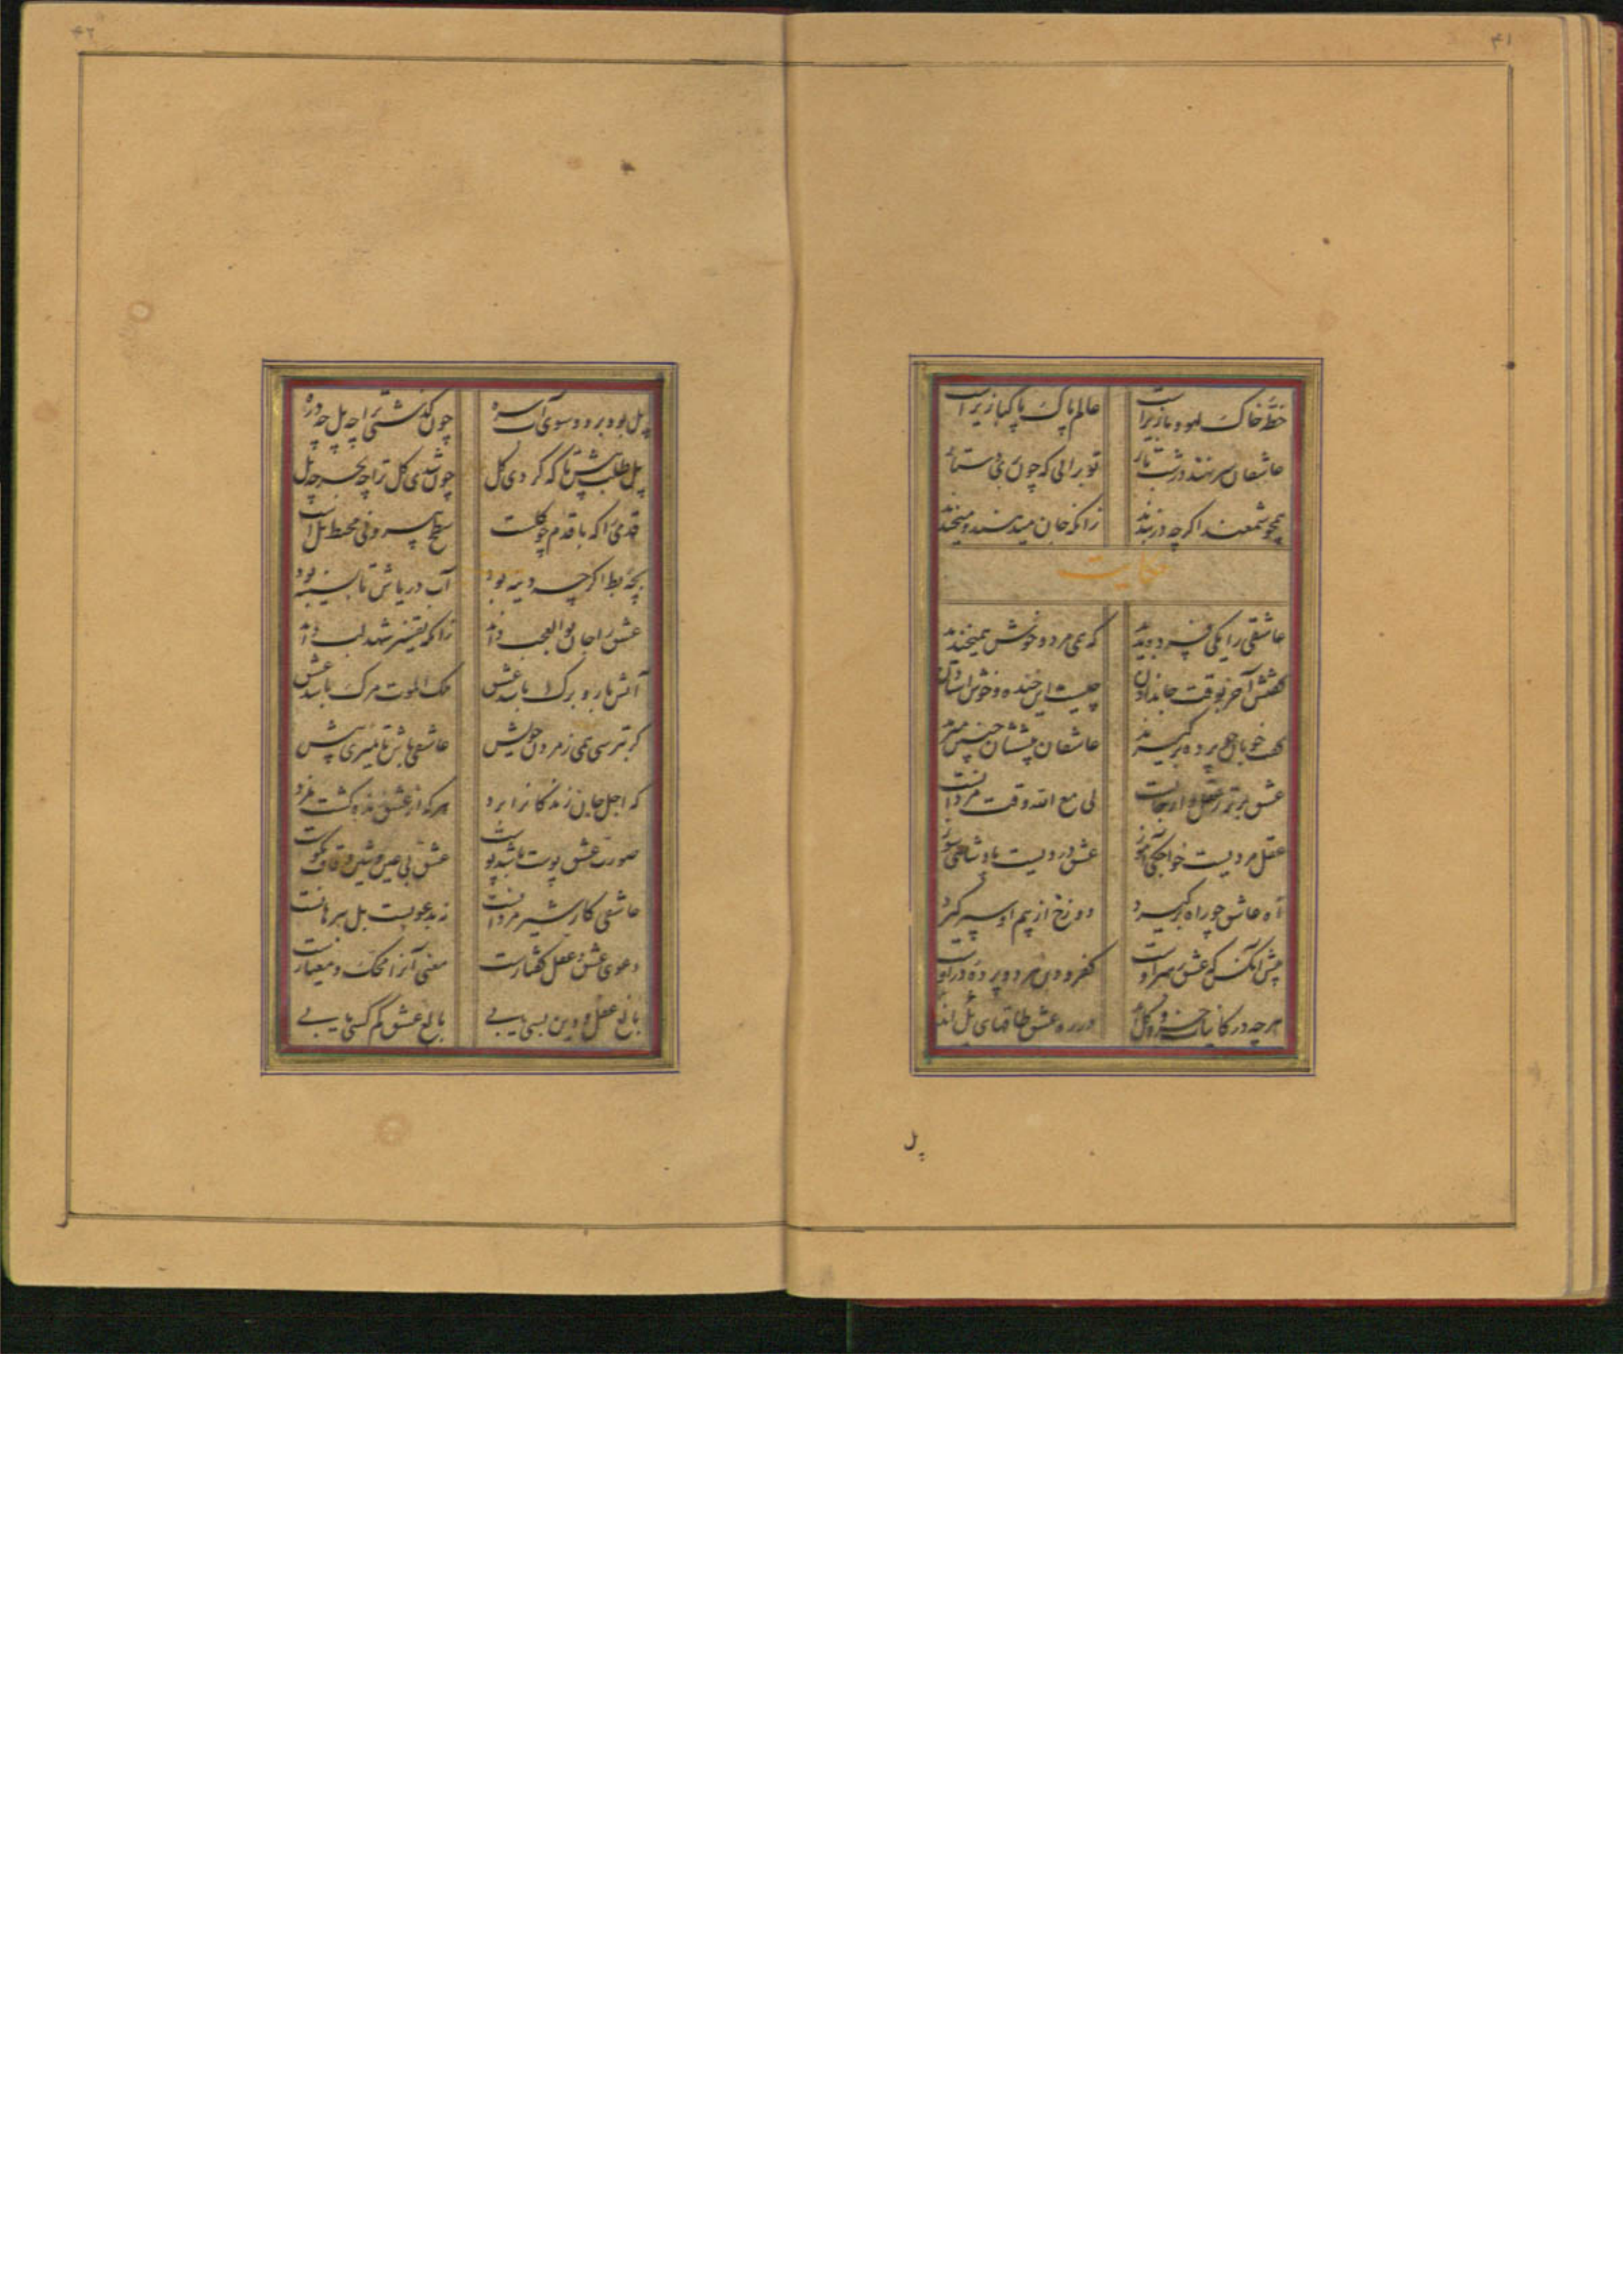 ۴۱
خطّ خاک لهو و بازیراست
عالم پاک پاکبازیراست
عاشقان سر نهند در شب تار
تو برانی که چون بری دستار
همچو شمعند اکرچه در بندند
زانکه جان میدهند و میخندند
حکایت
عاشقی را یکی فسرده بدید
که همی مرد و خوش همیخندید
کفتش آخر بوقت جاندادن
چیست این خنده و خوش استادن
کفت خوبان چو پرده برکیرند
عاشقان پیششان چنین میرند
عشق برتر ز عقل و از جانست
لی مع الله وقت مردانست
عقل مردیست خواجکی آموز
عشق دردیست پادشاهی سوز
آه عاشق چو راه برکیرد
دوزخ از بیم او سپر کیرد
پیش آنکس که عشق رهبر اوست
کفر و دین هر دو پرده در اوست
هرچه در کاینات جزو و کلند
در ره عشق طاقهای پل اند
پل
۴۲
پل بود بر دو سوی آب سره
چون کذشتی ترا چه پل چه دره
پل طلب پیش تا که کردی کل
چون شدی کل ترا چه بحر چه پل
قدمی را که با قدم چو کلست
سطح بیرونی محیط پل است
بچهٔ بط اکرچه دینه بود
آب دریاش تا بسینه بود
عشق را جان بوالعجب داند
زانکه تفسیر شهد لب داند
آتش بار و برک باشد عشق
ملک الموت مرک باشد عشق
کر بترسی همی ز مردن خویش
عاشقی باش تا نمیری پیش
که اجل جان زندکانرا برد
هرکه از عشق زنده کشت نمرد
صورت عشق پوست باشد پوست
عشق بی عین و شین و قاف نکوست
عاشقی کار شیر مردانست
نه بدعویست بل ببرهانست
دعوی عشق و عقل کفتارست
معنی آنرا محک و معیارست
بالغ عقل و دین بسی یابی
بالغ عشق کم کسی یابی